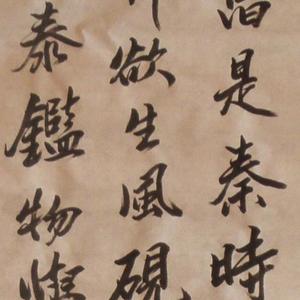 是秦時
欲生風硯
泰鑑物